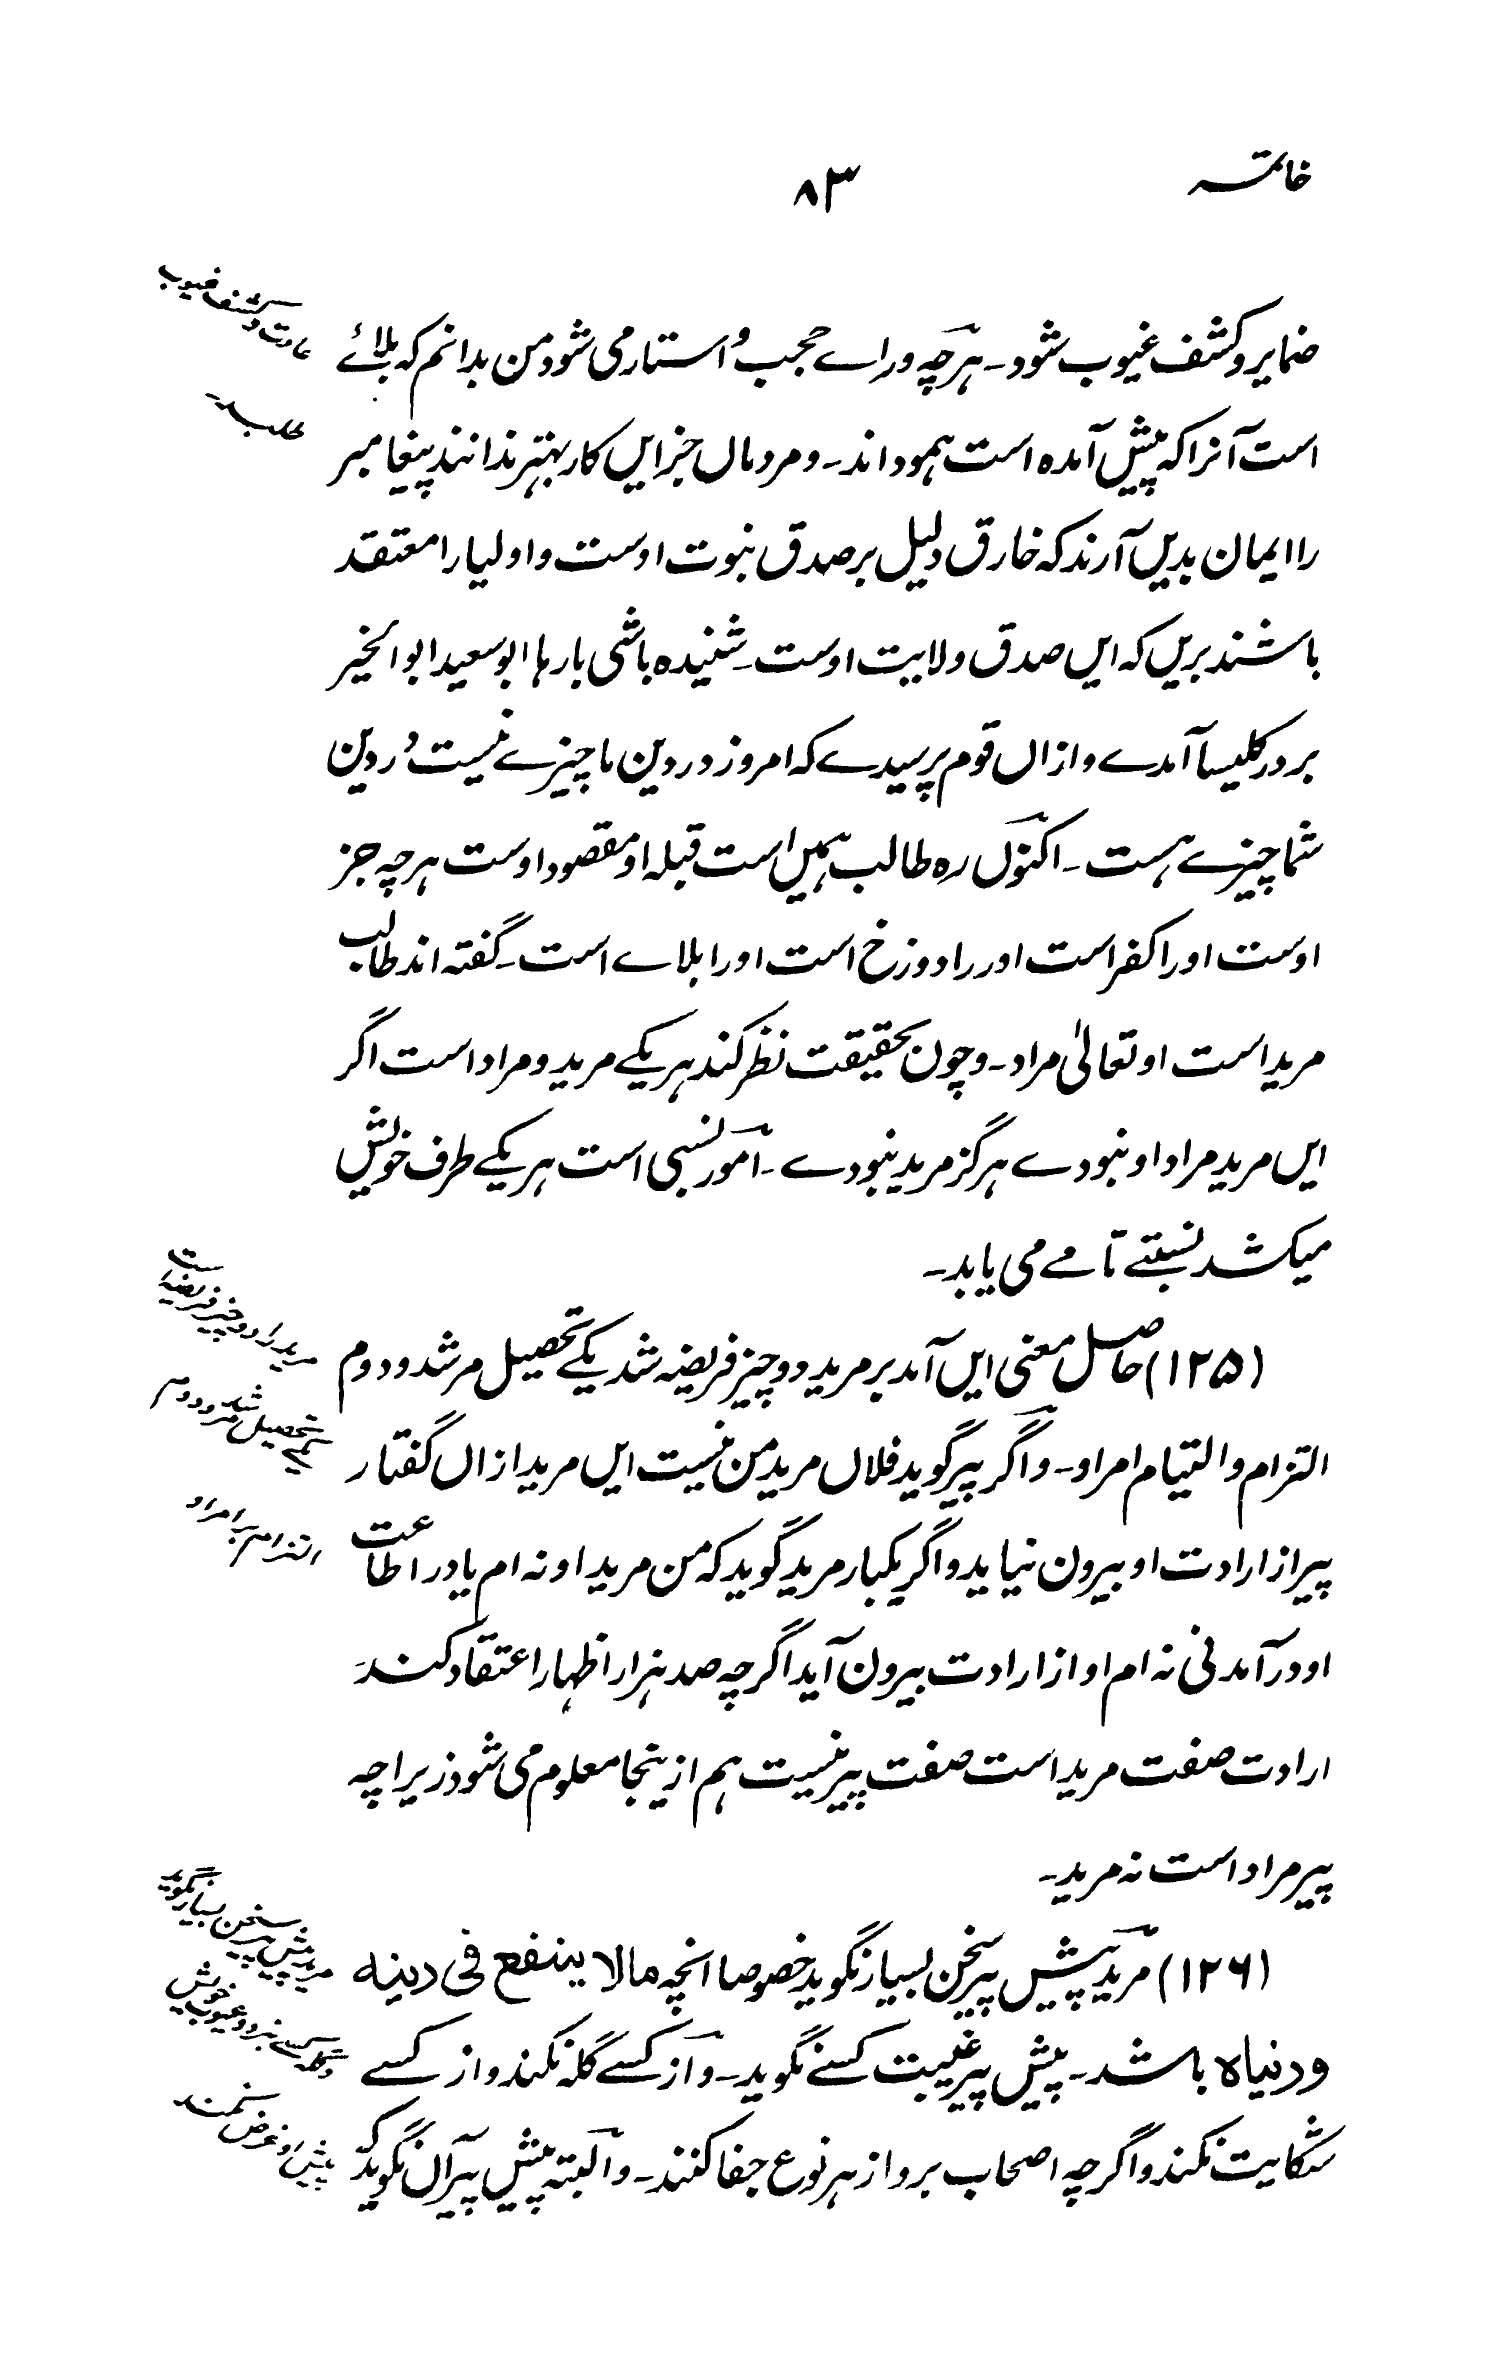 خاتمہ
۸۳
ضمایر و کشف غیوب شود۔ ہرچہ وراے حجب و استار می شود من بدانم کہ بلائے
است آنرا کہ پیش آمدہ است ہمو داند۔ و مردماں جز ایں کار بہتر ندانند پیغامبر
را ایمان بدیں آرند کہ خارق دلیل بر صدق نبوت اوست و اولیا را معتقد
باشند بریں کہ ایں صدق ولایت اوست۔ شنیدہ باشی بارہا ابو سعید ابو الخیر
بر در کلیسا آمدے و ازاں قوم پرسیدے کہ امروز در دین ما چیزے نیست در دین
شما چیزے ہست۔ اکنوں رہ طالب ہمیں است قبلہ او مقصود اوست ہرچہ جز
اوست اورا کفر است اورا دوزخ است اورا بلاے است۔ گفتہ اند طالب
مرید است او تعالیٰ مراد۔ و چون بحقیقت نظر کند ہر یکے مرید و مراد است اگر
ایں مرید مراد او نبودے ہرگز مرید نبودے۔ امور نسبی است ہر یکے طرف خویش
میکشد نسبتے تامے می یابد۔
(۱۲۵) حاصل معنی ایں آمد بر مرید دو چیز فریضہ شد یکے تحصیل مرشد و دوم
التزام و التیام امر او۔ و اگر پیر گوید فلاں مرید من نیست ایں مرید ازاں گفتار
پیر از ارادت او بیرون نیاید و اگر یکبار مرید گوید کہ من مرید او نہ ام یا در اطاعت
او در آمدنی نہ ام او از ارادت بیرون آید اگرچہ صد ہزار اظہار اعتقاد کند
ارادت صفت مرید است صفت پیر نیست ہم ازینجا معلوم می شود زیراچہ
پیر مراد است نہ مرید۔
(۱۲۶) مرید پیش پیر سخن بسیار نگوید خصوصا انچہ مالا ینفع فی دینہ
و دنیاہ باشد۔ پیش پیر غیبت کسے نگوید۔ و از کسے گلہ نکند و از کسے
شکایت نکند و اگرچہ اصحاب برو از ہر نوع جفا کنند۔ و البتہ پیش پیر آں نگوید کہ
عادت و کشف غیوب
طلبد۔
مرید را دو چیز فریضہ است
یکے تحصیل مرشد و دوم
التزام بر امر او
مرید پیش پیر سخن بسیار نگوید
و گلہ کسے نبرد و عیوب خویش
پیش او عرض نکند